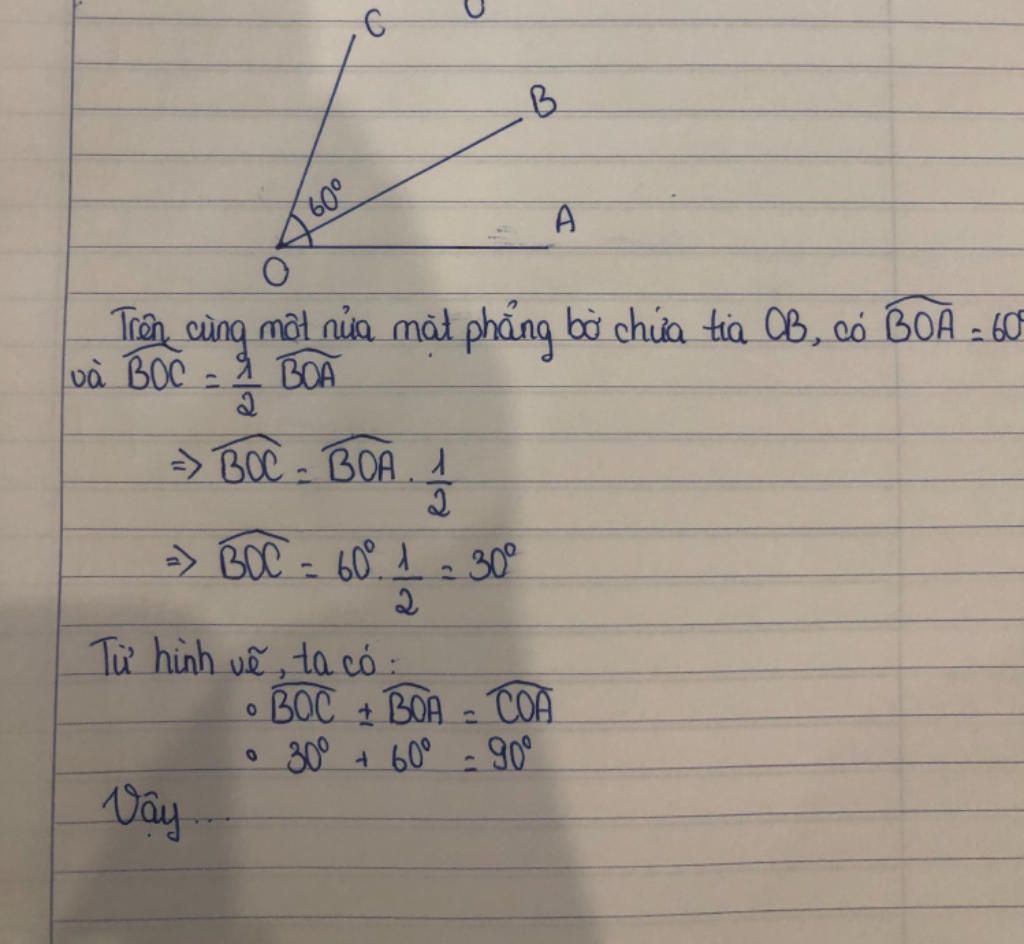 C
B
60°
A
O
Trên cùng một nửa mặt phẳng bờ chứa tia OB, có \widehat{BOA} = 60°
và \widehat{BOC} = \frac{1}{2} \widehat{BOA}
=> \widehat{BOC} = \widehat{BOA} . \frac{1}{2}
=> \widehat{BOC} = 60° . \frac{1}{2} = 30°
Từ hình vẽ, ta có :
• \widehat{BOC} ± \widehat{BOA} = \widehat{COA}
• 30° + 60° = 90°
Vậy ...